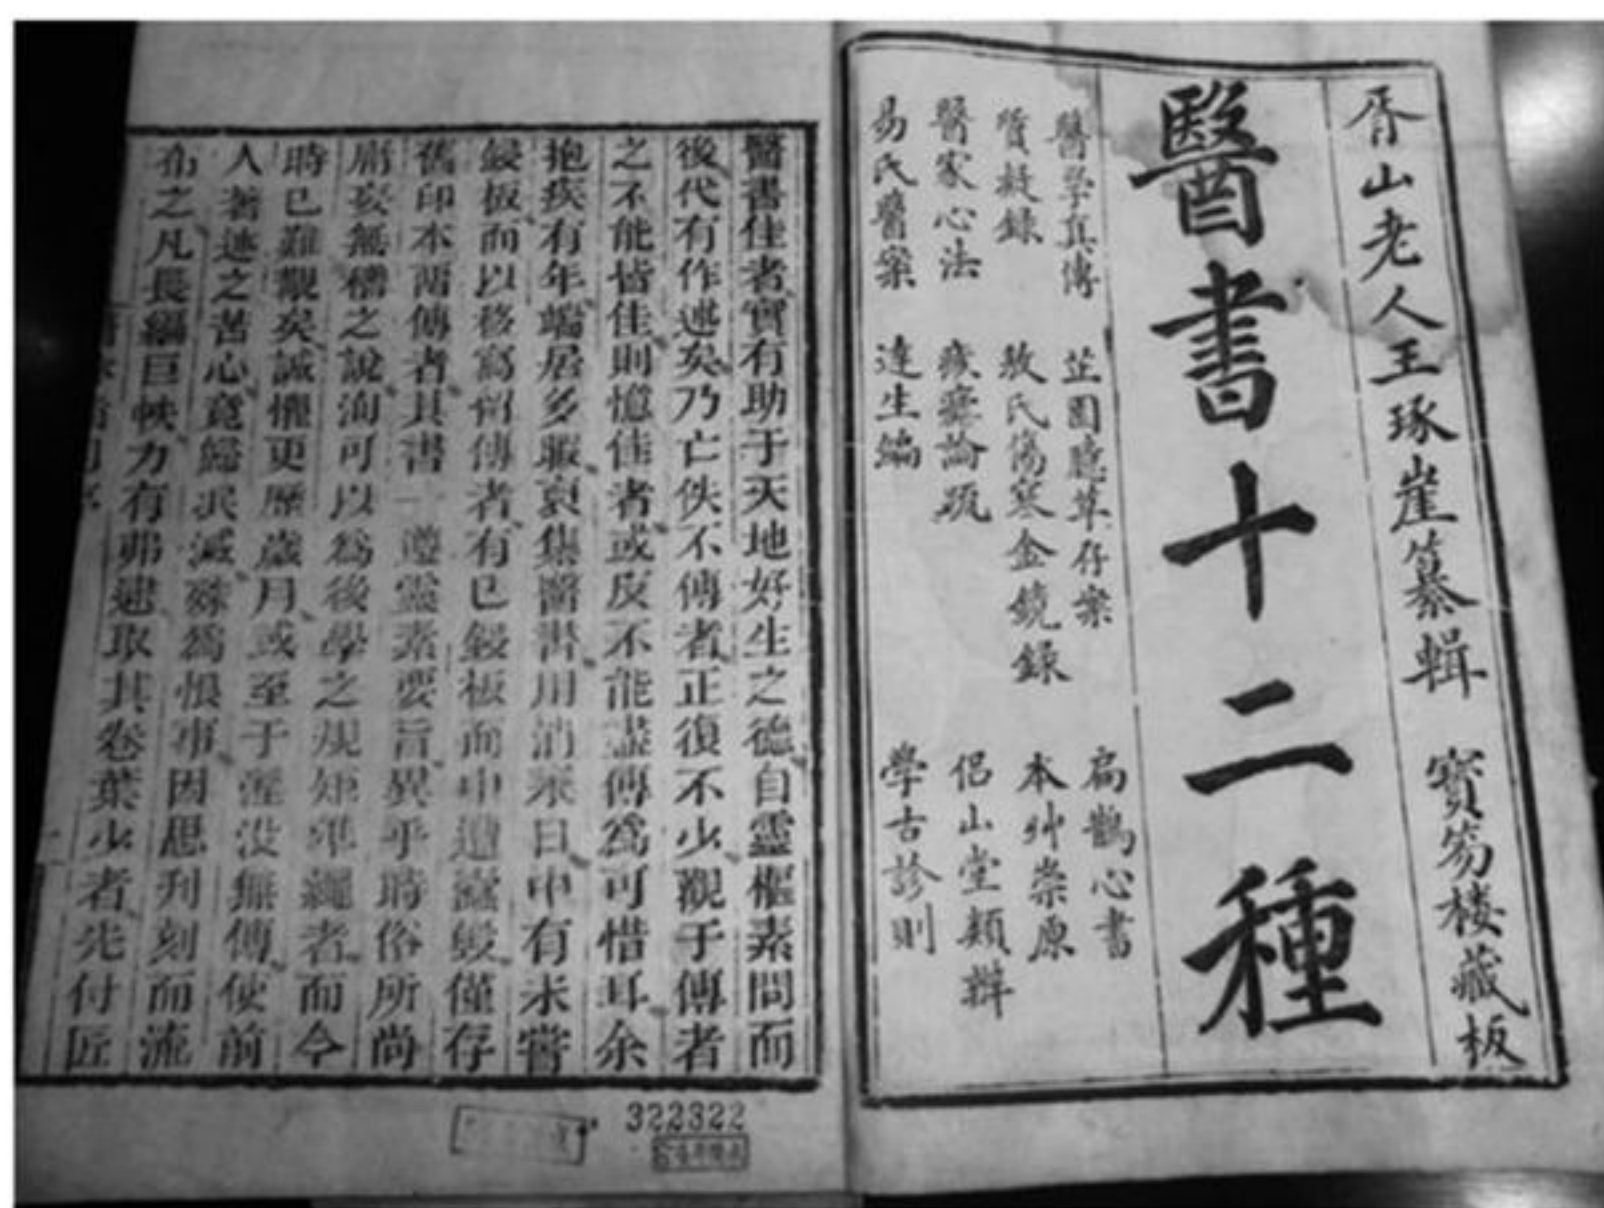 胥山老人王琢崖纂輯 寶笏楼藏板
醫書十二種
醫學真傳 芷園臆草存案 扁鵲心書
質疑錄 敖氏傷寒金鏡錄 本艸崇原
醫家心法 痎瘧論疏 侶山堂類辯
易氏醫案 達生編 學古診則
醫書佳者實有助于天地好生之德自靈樞素問而
後代有作述矣乃亡佚不傳者正復不少覯于傳者
之不能皆佳則憶佳者或反不能盡傳爲可惜耳余
抱疾有年端居多暇裒集醫書用消永日中有未嘗
鋟板而以移寫相傳者有已鋟板而中遭蠹毀僅存
舊印本兩傳者其書一遵靈素要旨異乎時俗所尚
庸妄無稽之說洵可以爲後學之規矩準繩者而今
時已難覯矣誠懼更歷歲月或至于湮没無傳使前
人著述之苦心竟歸泯滅殊爲恨事因思刋刻而流
布之凡長編巨帙力有弗逮取其卷葉少者先付匠
322322